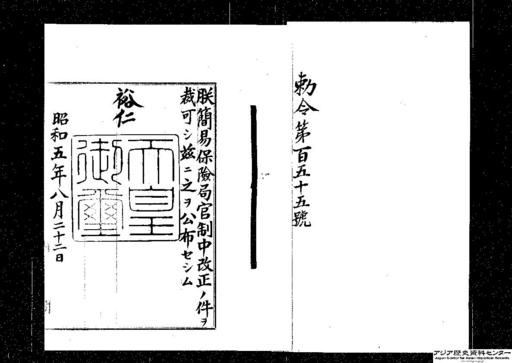 勅令第百五十五號
朕簡易保險局官制中改正ノ件ヲ
裁可シ玆ニ之ヲ公布セシム
裕仁
天皇御璽
昭和五年八月二十二日
アジア歴史資料センター
Japan Center for Asian Historical Records